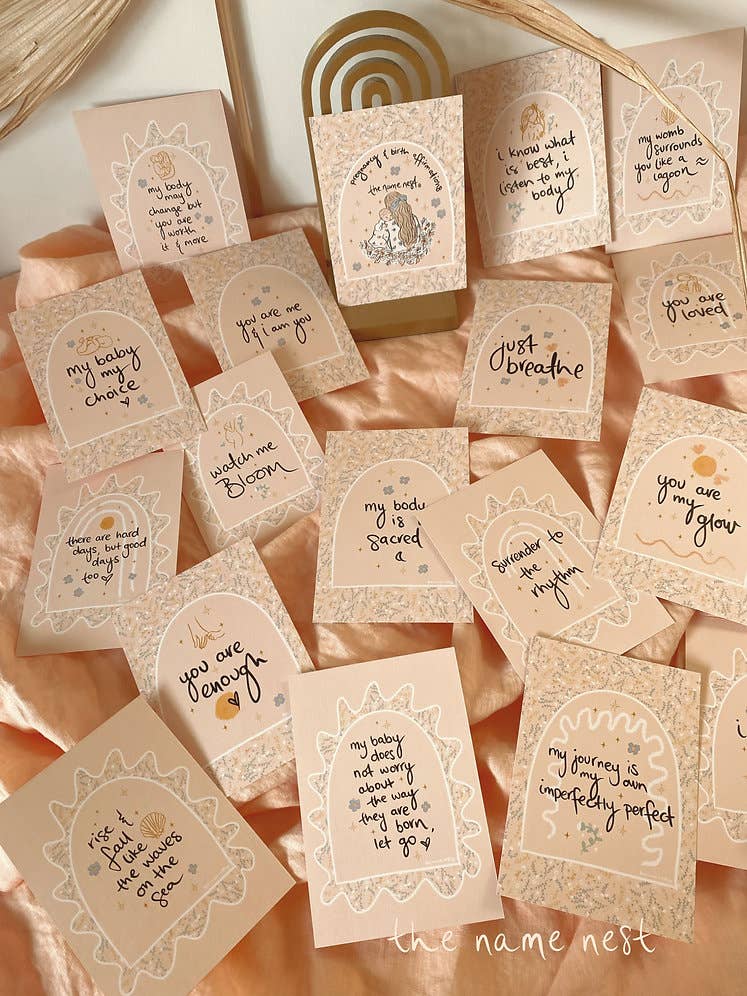 my body
may
change but
you are
worth
it & more
pregnancy & birth affirmations
the name nest
i know what
is best, i
listen to my
body
my womb
surrounds
you like a
lagoon
you are me
& i am you
you are
loved
my baby
my
choice
just
breathe
watch me
Bloom
you are
my
glow
there are hard
days, but good
days
too
my body
is
sacred
surrender to
the
rhythm
you are
enough
my baby
does
not worry
about
the way
they are
born,
let go
my journey is
my own
imperfectly perfect
rise &
fall
like
the waves
on the
sea
the name nest